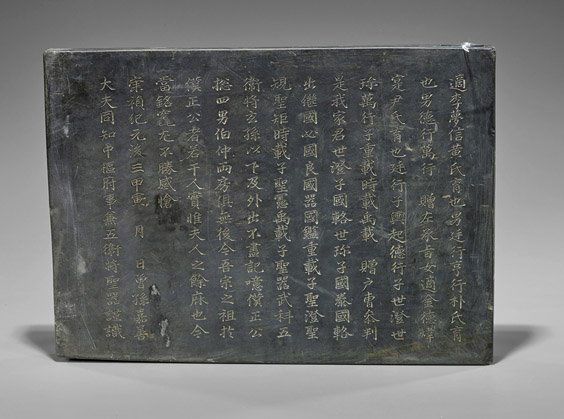 適李夢信黃氏育也男廷行亨行朴氏育
也男德行萬行 贈左承旨女適金德
寔尹氏育也廷行子興起德行子世澄世
珎萬行子重載時載禹載 贈戶曹參判
是我家君世澄子國輅世珎子國蓁國輅
出繼國必國良國器國鑑重載子聖澄聖
規聖矩時載子聖禹載子聖器武科五
衛將玄孫以下及外出不盡記噫僕正公
捴四男伯仲兩房俱無後今吾宗之祖於
僕正公者若干人實惟夫人之餘庥也今
當銘竁尤不勝感愴
崇禎紀元後三甲寅 月 日曾孫嘉善
大夫同知中樞府事兼五衛將聖器謹識